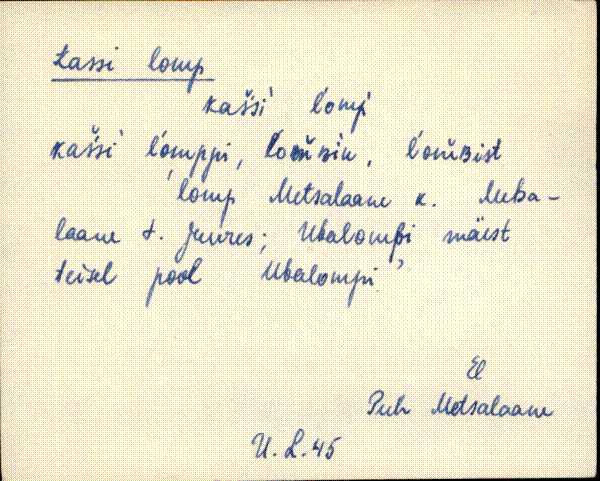 Kassi lomp
kašši l'omp
kašši l'omppi, l'om̆bin, l'om̆bist
'lomp Metsalaane k. Metsa-
laane t. juures; Ubalompi mäest
teisel pool Ubalompi'
El
Puh Metsalaane
U. L. 45